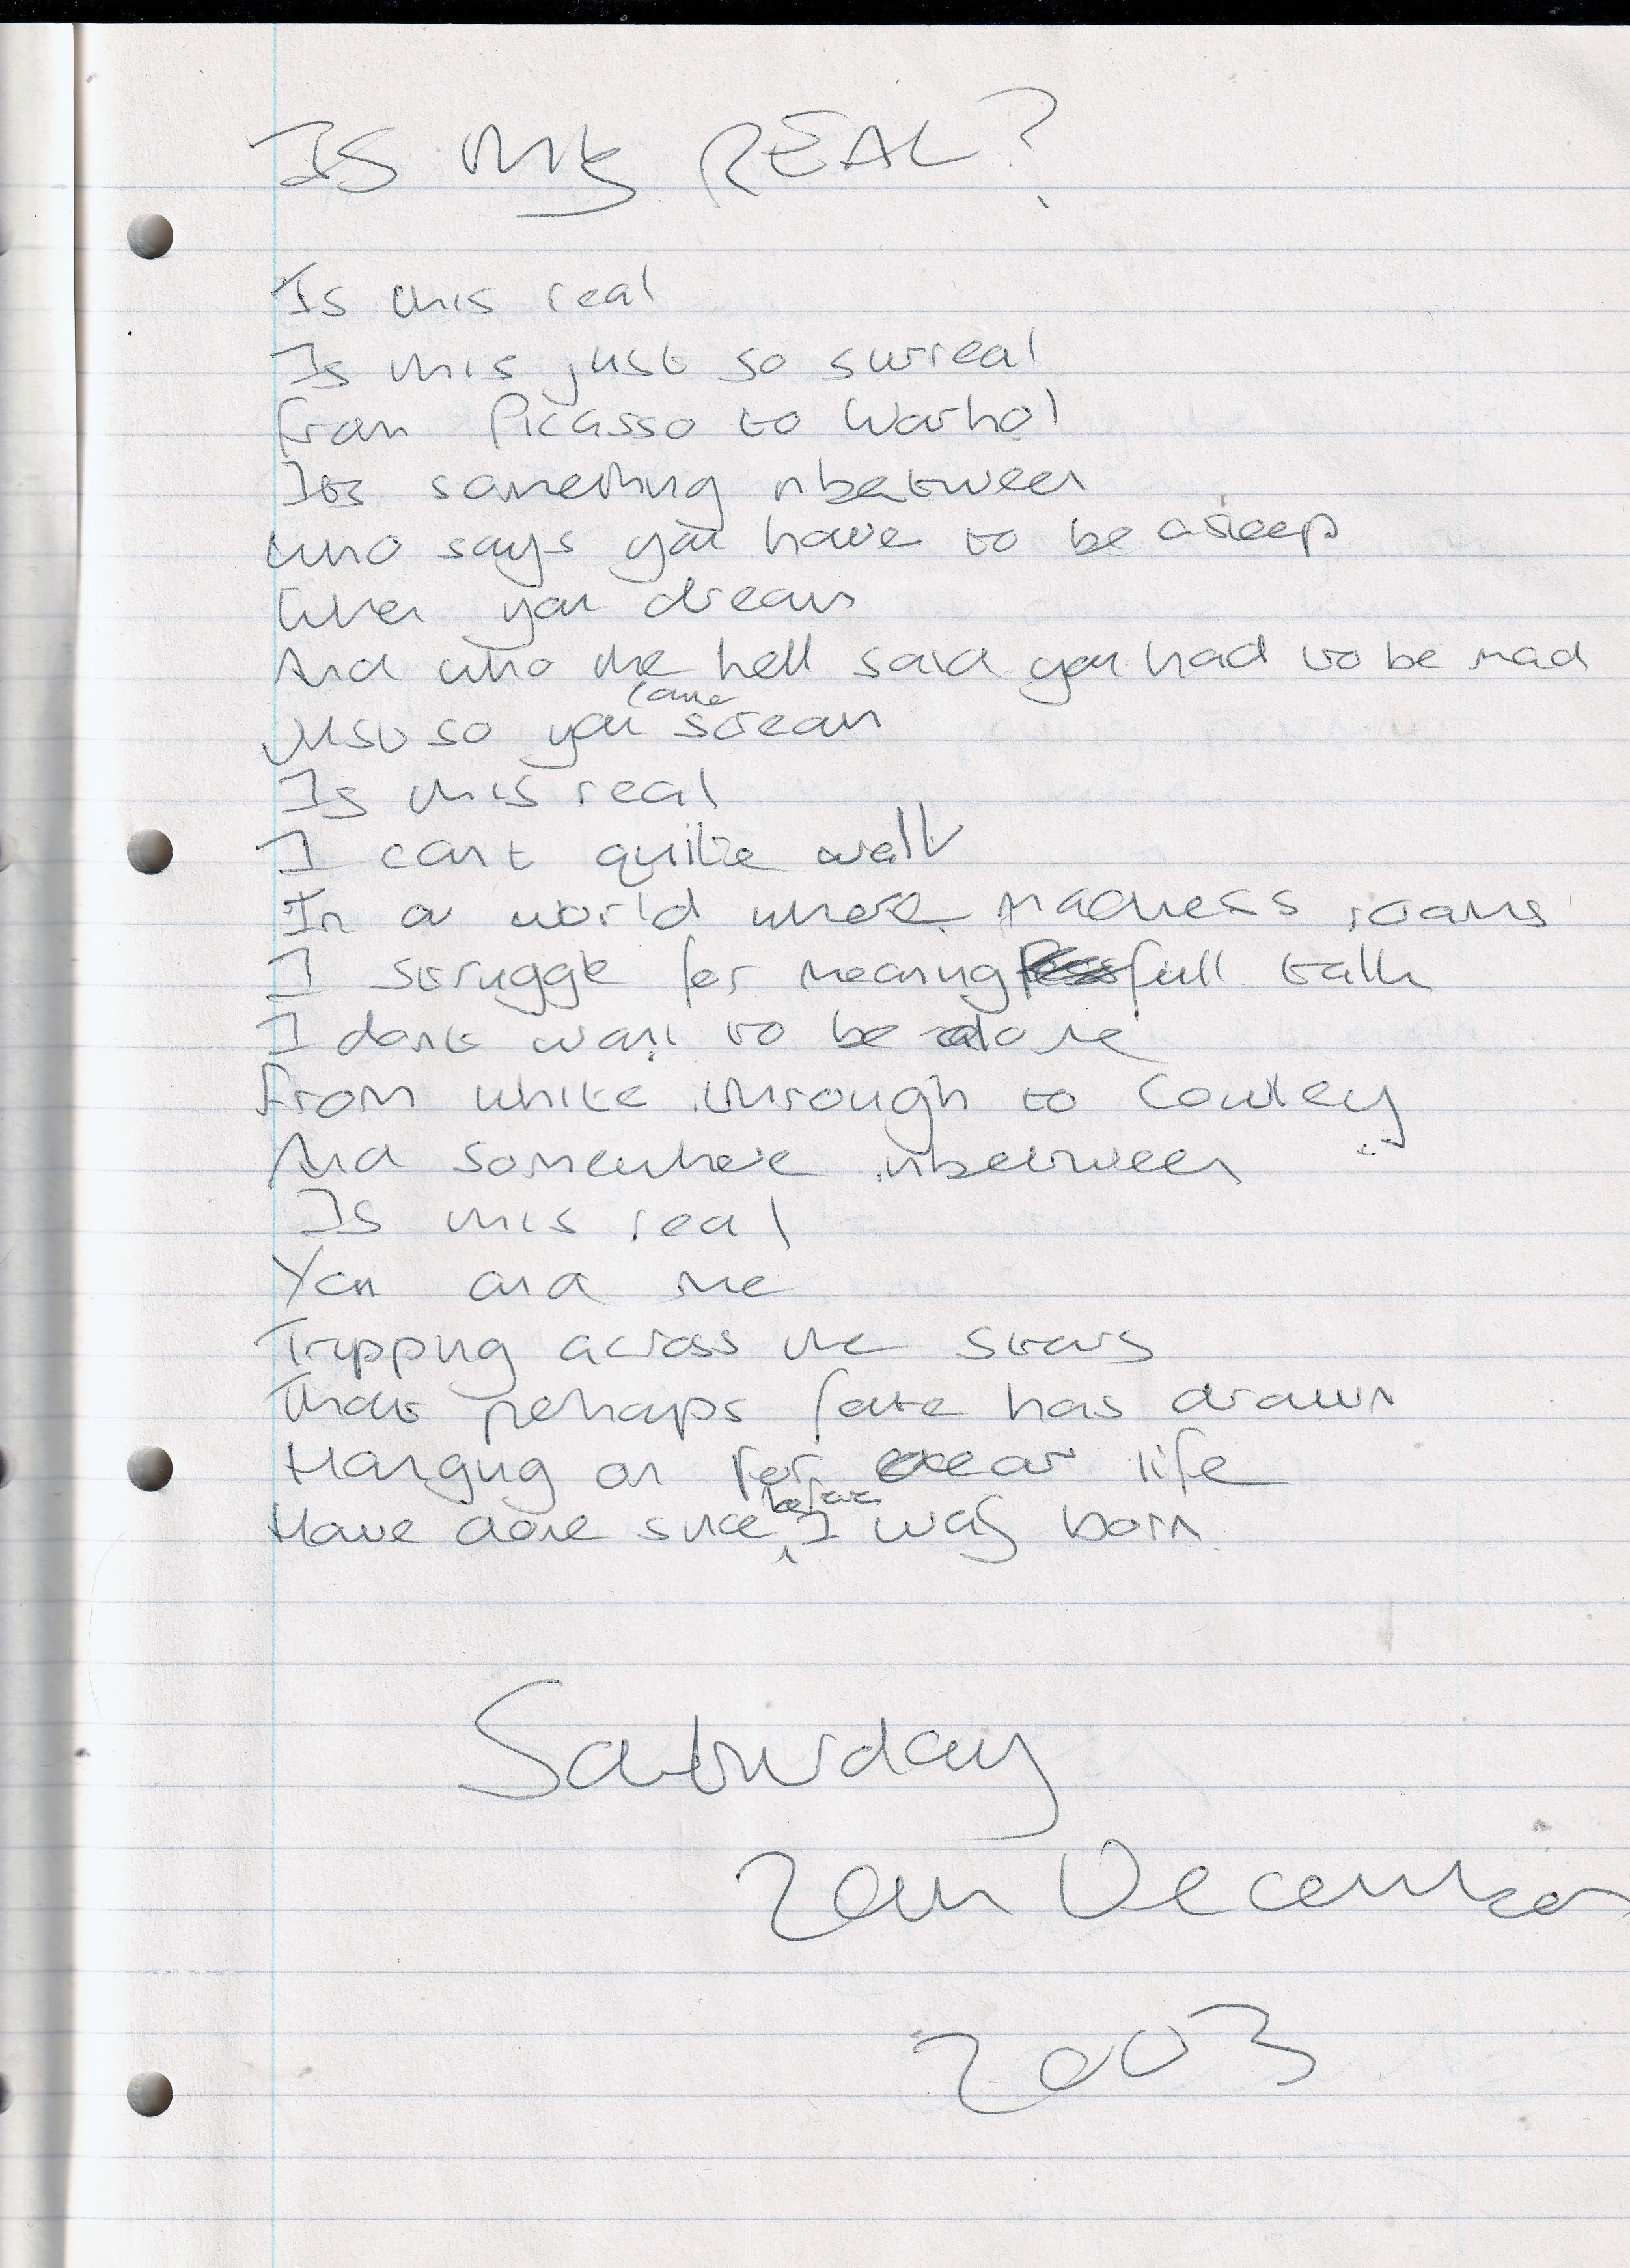 IS this REAL?
Is this real
Is this just so surreal
from Picasso to Warhol
Its something inbetween
who says you have to be asleep
When you dream
And who the hell said you had to be mad
Just so you scream
Is this real
I cant quite walk
In a world where madness roams
I struggle for meaningfull talk
I dont want to be alone
From white through to Cowley
And somewhere inbetween
Is this real
You and me
Tripping across the stars
That perhaps fate has drawn
Hanging on for dear life
Have done since before I was born
Saturday
20th December
2003